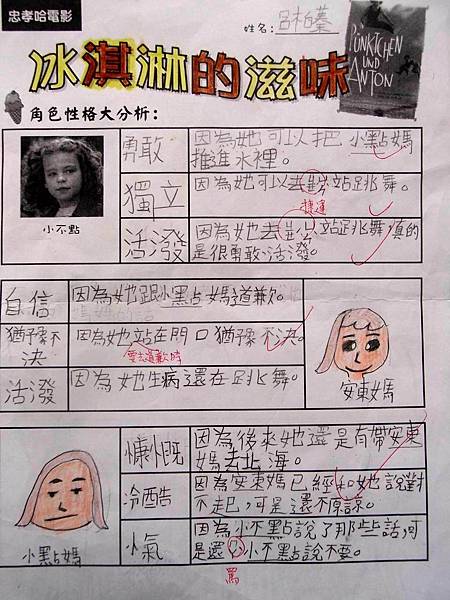 忠孝哈電影
姓名:呂柏蓁
冰淇淋的滋味
PÜNKTCHEN
UND
ANTON
角色性格大分析:
勇敢
因為她可以把小點媽
推進水裡。
獨立
因為她可以去ㄐㄧㄝˊ站跳舞。
捷運
活潑
因為她去ㄐㄧㄝˊ站跳舞,真的
是很勇敢、活潑。
小不點
自信
因為她跟小黑占媽道歉。
猶豫不
決
因為她站在門口猶豫不決。
要去道歉時
活潑
因為她生病還在跳舞。
安東媽
慷慨
因為後來她還是有帶安東
媽去北海。
冷酷
因為安東媽已經和她說對
不起,可是還不原諒。
小氣
因為小不點說了那些話,可
是還小不點說不要。
罵
小點媽